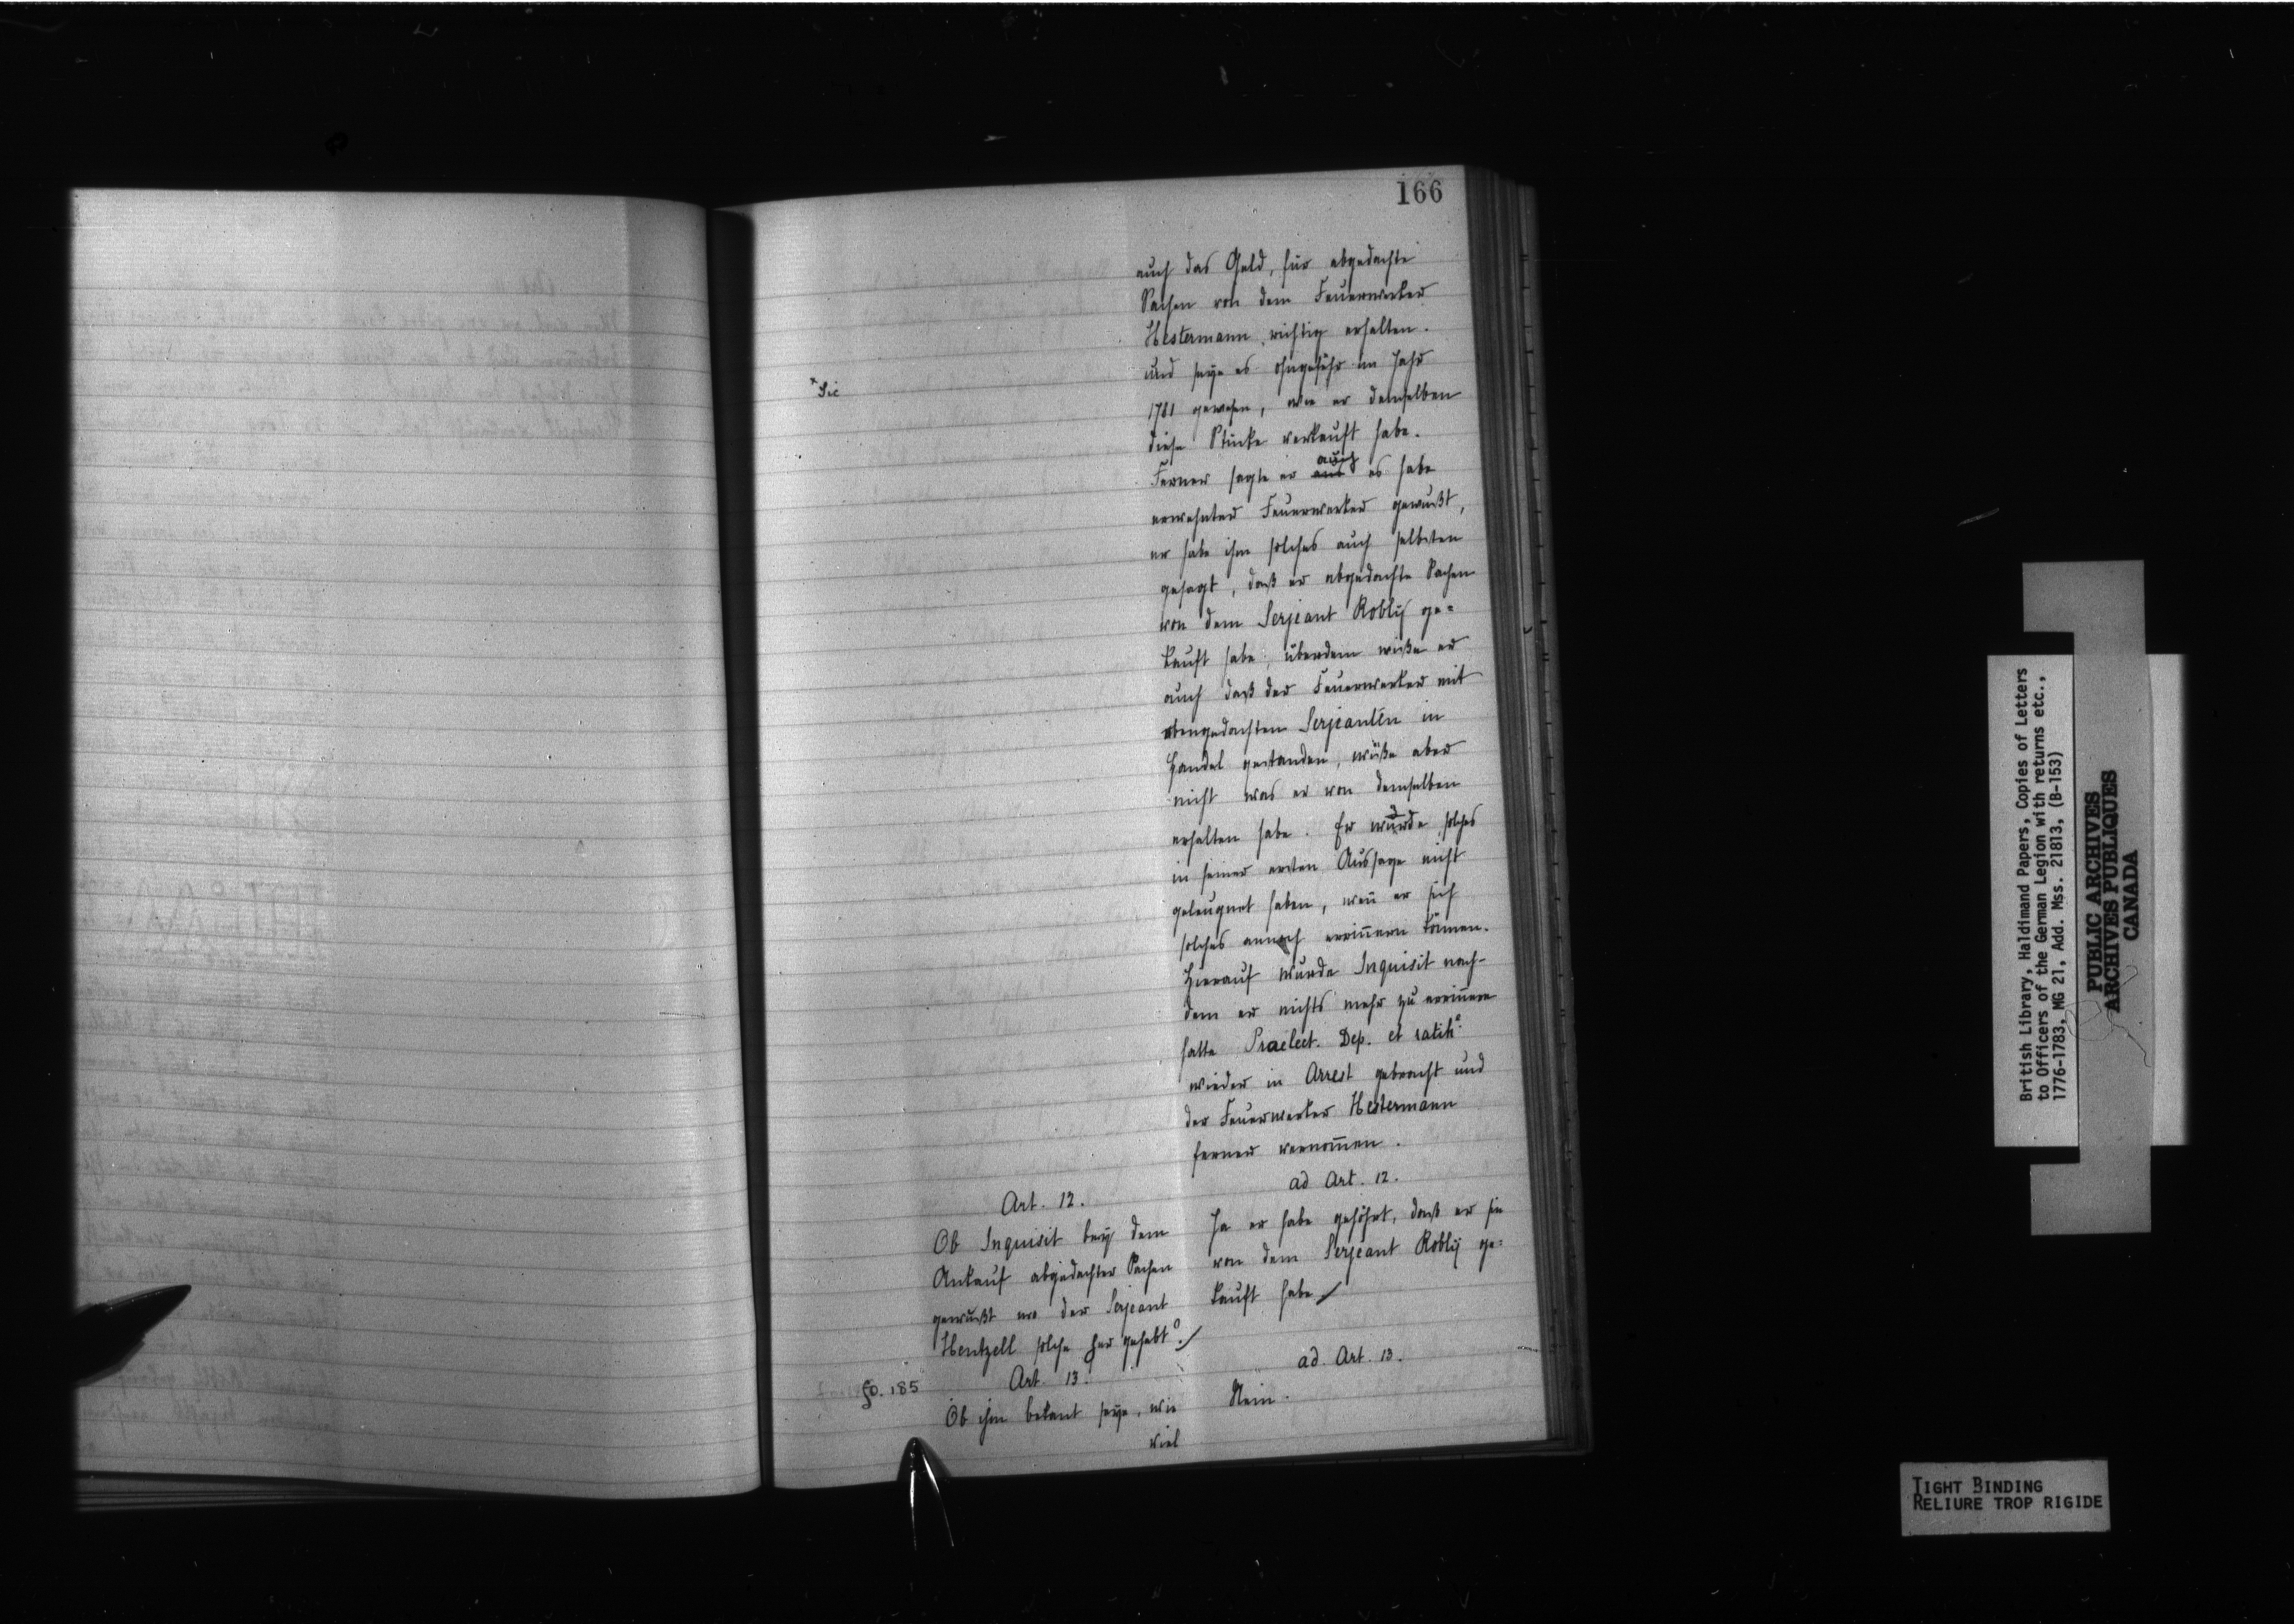 166
auch das Geld, für abgedachte
Sachen von dem Feuerwerker
Hestermann richtig erhalten.
und seye es ohngefähr im Jahr
x Sic
1781 gewesen, wie er demselben
diese Stücke verkauft habe.
Ferner sagte er aus auch es habe
erwehnter Feuerwerker gewußt,
er habe ihm solches auch selbsten
gesagt, daß er abgedachte Sachen
von dem Serjeant Robly ge=
kauft habe, überdem wiße er
auch daß der Feuerwerker mit
obengedachten Serjeanten in
Handel gestanden, wüße aber
nicht was er von demselben
erhalten habe. Er würde solches
in seiner ersten Aussage nicht
geleugnet haben, weñ er sich
solches annoch erriñern können.
Hierauf wurde Inquisit nach-
dem er nichts mehr zu erriñern
hatte Praelect. Dep. et ratih°.
wieder in Arrest gebracht und
der Feuerwerker Hestermann
ferner vernom̅en.
Art. 12.
Ob Inquisit bey dem
Ankauf abgedachter Sachen
gewußt wo der Serjeant
Hentzell solche her gehabt?
ad Art. 12.
Ja er habe gehöhrt, daß er sie
von dem Serjeant Robly ge=
kauft habe
fo. 185
Art. 13.
Ob ihm bekant seye, wie
viel
ad. Art. 13.
Nein.
British Library, Haldimand Papers, Copies of Letters
to Officers of the German Legion with returns etc.,
1776-1783, MG 21, Add. Mss. 21813, (B-153)
PUBLIC ARCHIVES
ARCHIVES PUBLIQUES
CANADA
TIGHT BINDING
RELIURE TROP RIGIDE